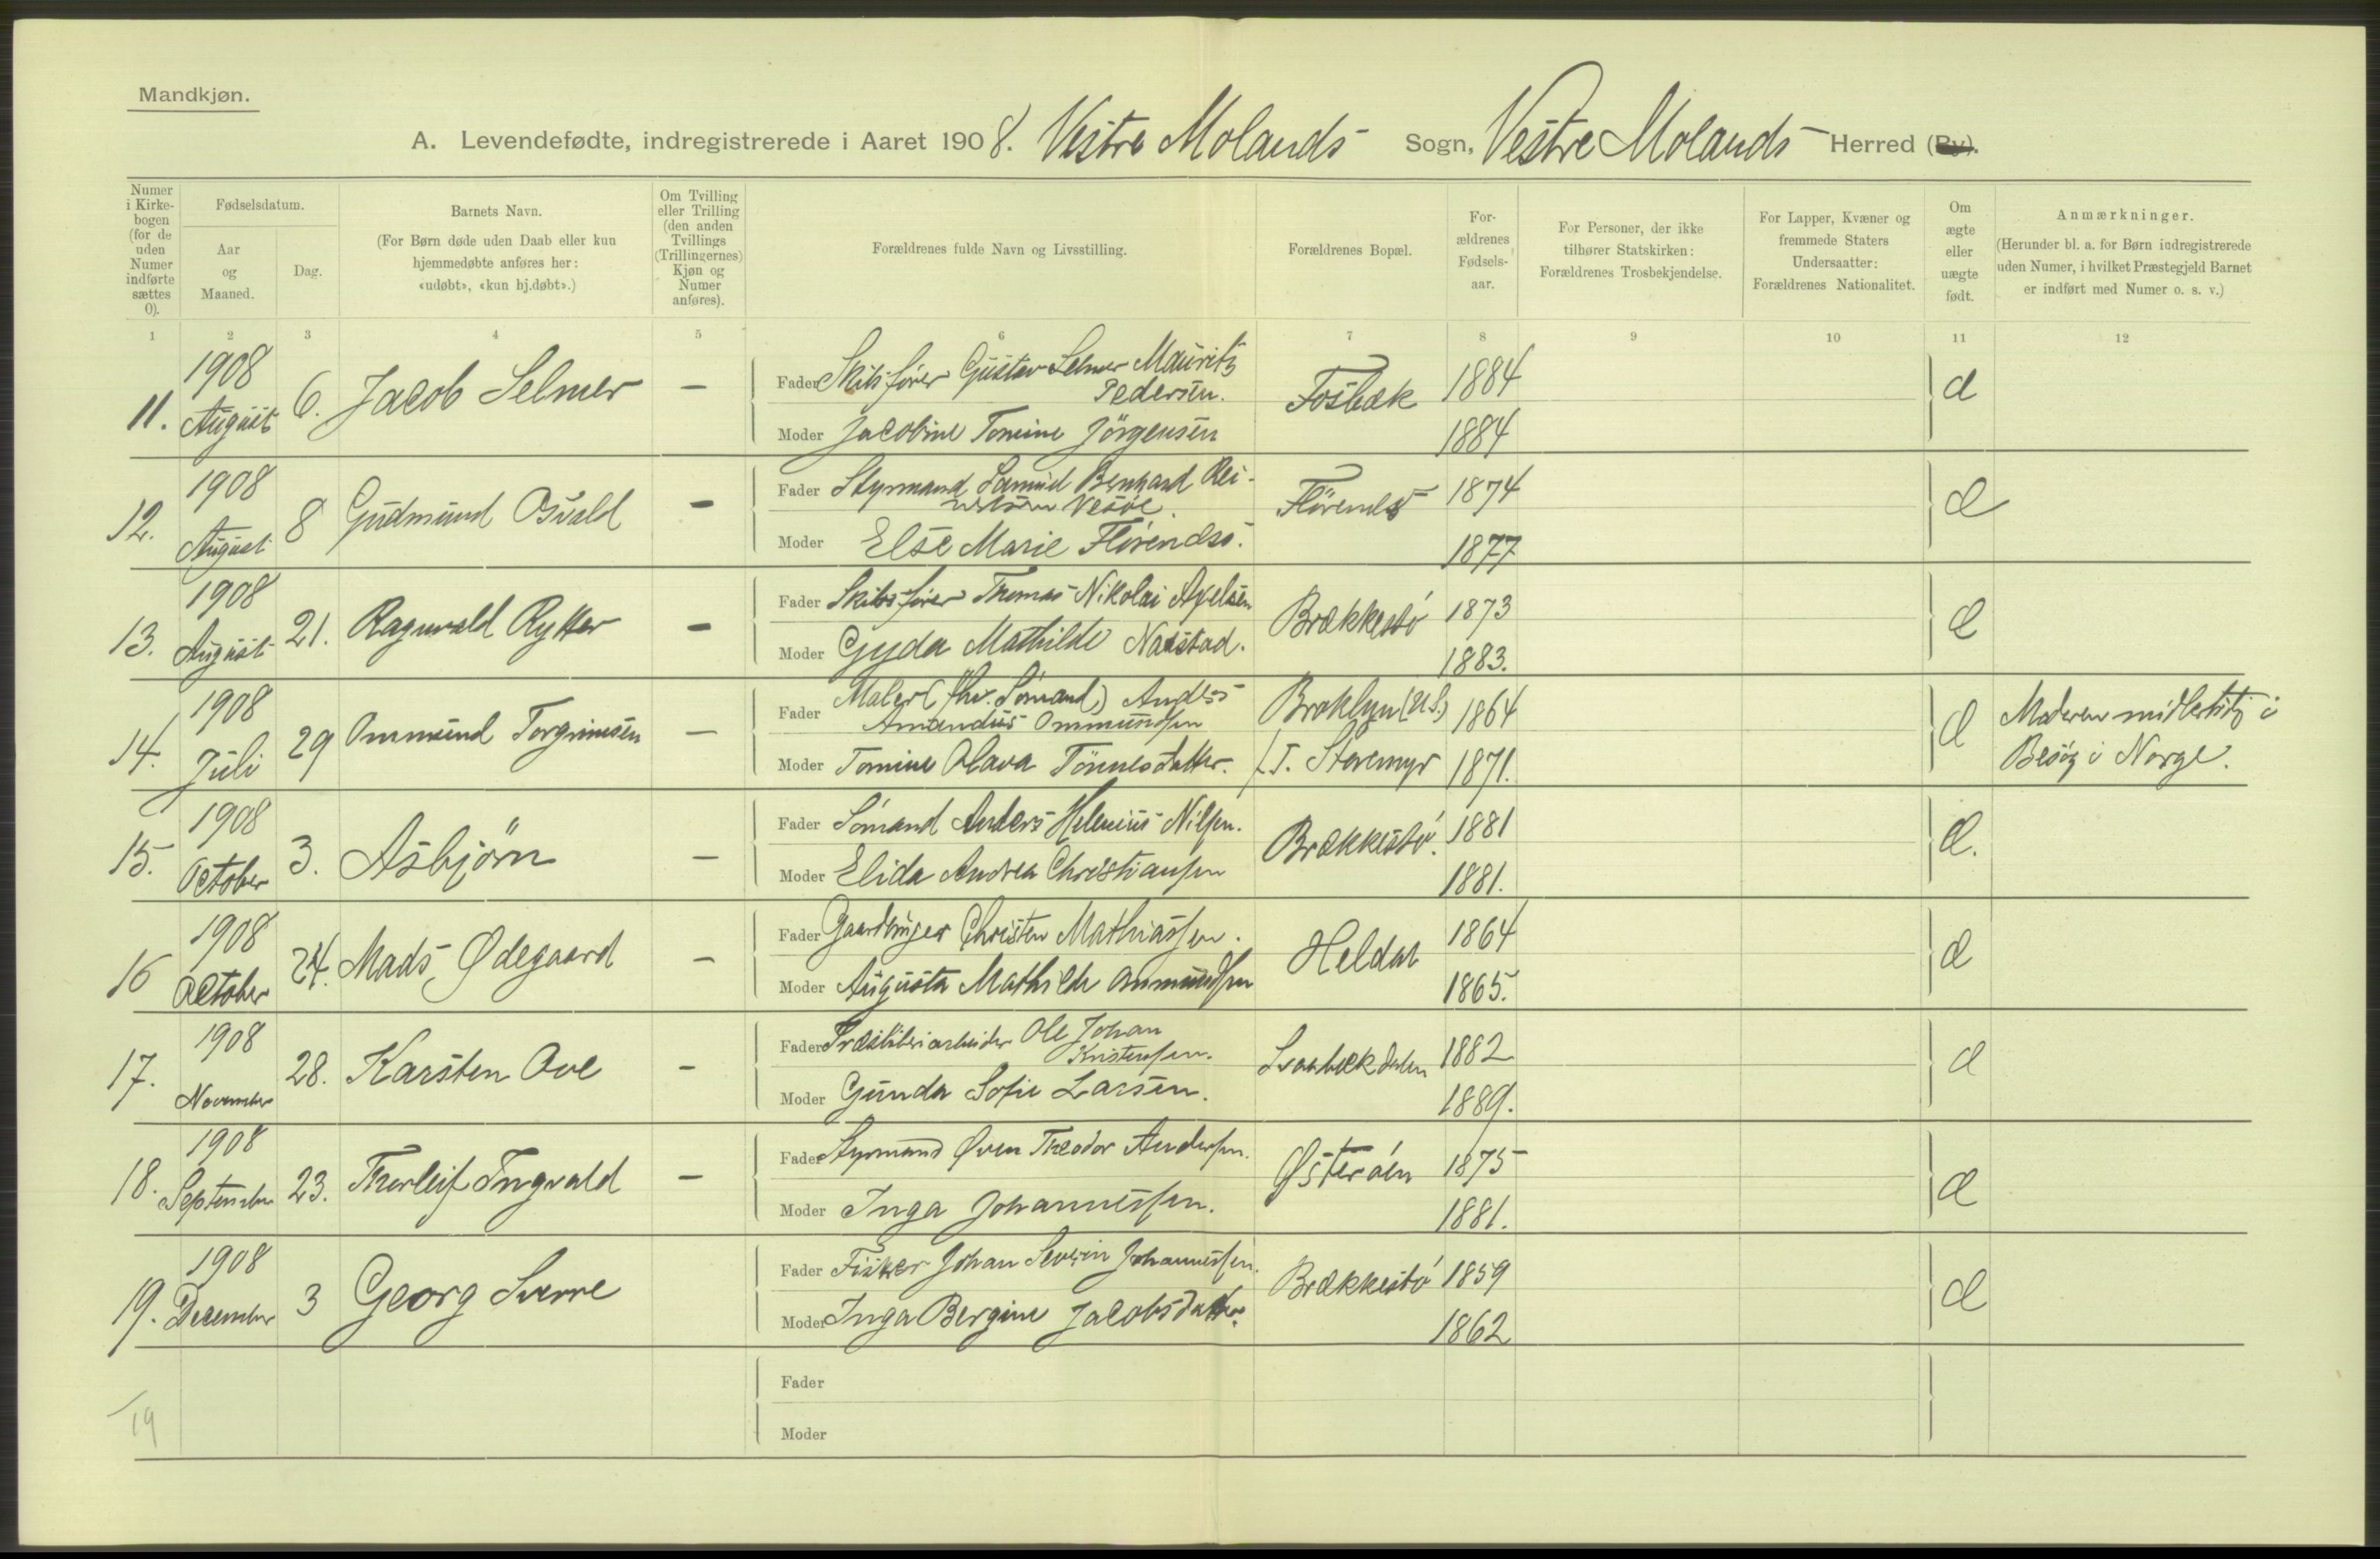 Mandkjøn.
A. Levendefødte, indregistrerede i Aaret 1908. Vestre Molands Sogn, Vestre Molands Herred (By).
Numer i Kirkebogen (for de uden Numer indførte sættes 0).
Fødselsdatum.
Aar og Maaned.
Dag.
Barnets Navn.
(For Børn døde uden Daab eller kun hjemmedøbte anføres her: «udøbt», «kun hj.døbt».)
Om Tvilling eller Trilling (den anden Tvillings (Trillingernes) Kjøn og Numer anføres).
Forældrenes fulde Navn og Livsstilling.
Forældrenes Bopæl.
Forældrenes Fødselsaar.
For Personer, der ikke tilhører Statskirken: Forældrenes Trosbekjendelse.
For Lapper, Kvæner og fremmede Staters Undersaatter: Forældrenes Nationalitet.
Om ægte eller uægte født.
Anmærkninger.
(Herunder bl. a. for Børn indregistrerede uden Numer, i hvilket Præstegjeld Barnet er indført med Numer o. s. v.)
1 2 3 4 5 6 7 8 9 10 11 12
11. 1908 August 6. Jacob Selmer –
Fader Skibsfører Gustav Selmer Mauritz Pedersen. Fosbæk 1884 æ
Moder Jacobine Tomine Jörgensen 1884
12. 1908 August 8 Gudmund Osvald –
Fader Styrmand Samuel Bernhard Vesöe. 1874 æ
Moder Else Marie 1877
13. 1908 August 21. Ragnvald Rytter –
Fader Skibsfører Thomas Nikolai Axelsen Brækkestö 1873 æ
Moder Gyda Mathilde Narstad. 1883.
14. 1908 Juli 29 Ommund Torgrimsen –
Fader Maler (fhv. Sömand) Anders Amandus Ommundsen Broklyn (U.S.) 1864 æ Moderen midlertidig i
Moder Tomine Olava Tönnesdatter. f. T. Støremyr 1871. Besög i Norge.
15. 1908 October 3. Asbjörn –
Fader Sömand Anders Helenius Nilsen. Brækkestö. 1881 æ.
Moder Elida Andrea Christiansen 1881.
16 1908 October 24. Mads Ødegaard –
Fader Gaardbruger Christen Mathiassen. Heldal 1864 æ
Moder Augusta Mathilde Ommundsen 1865.
17. 1908 November 28. Karsten Ove –
Fader Ole Johan Kristensen. 1882 æ
Moder Gunda Sofie Larsen. 1889.
18. 1908 September 23. Thorleif Ingvald –
Fader Styrmand Theodor Andersen. Østeröen 1875 æ
Moder Inga Johannessen. 1881.
19. 1908 December 3 Georg Sverre
Fader Fisker Johan Severin Johannessen. Brækkestö 1859 æ
Moder Inga Bergine Jacobsdatter. 1862
Fader
19
Moder